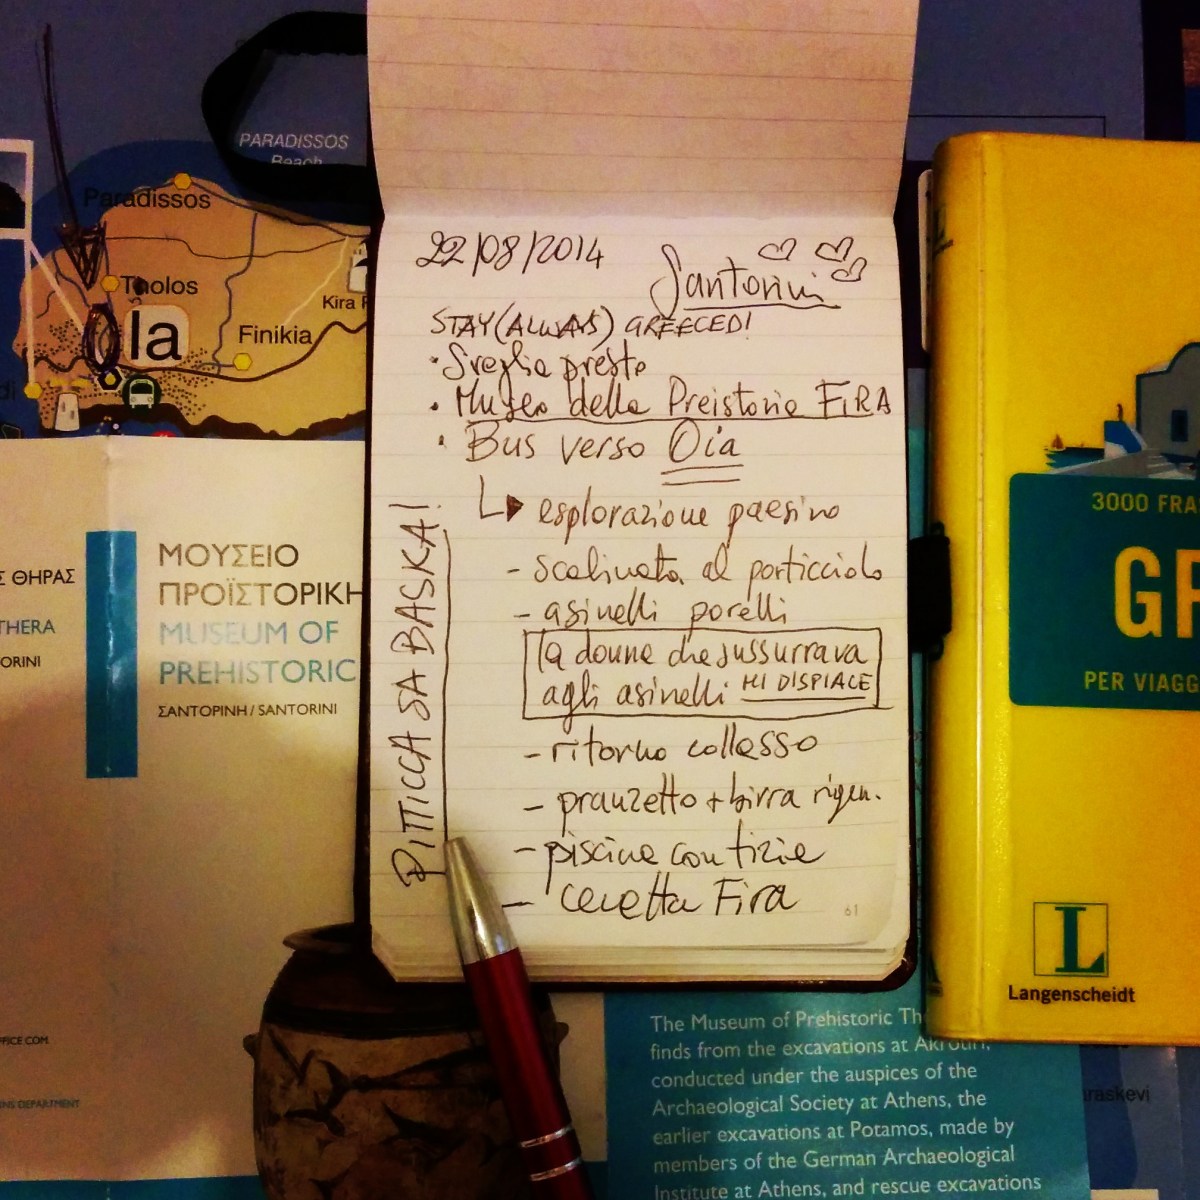 PARADISSOS
Beach
Paradissos
Tholos
Ia
Finikia
Kira
Σ ΘΗΡΑΣ
THERA
ORINI
ΜΟΥΣΕΙΟ
ΠΡΟΪΣΤΟΡΙΚΗ
MUSEUM OF
PREHISTORIC
ΣΑΝΤΟΡΙΝΗ / SANTORINI
FFICE.COM
NS DEPARTMENT
22/08/2014
Santorini
STAY (ALWAYS) GREECED!
• Sveglia presto
• Museo della Preistoria FIRA
• Bus verso Oia
esplorazione paesino
- scalinata al porticciolo
- asinelli porelli
la donna che sussurrava
agli asinelli MI DISPIACE
- ritorno collasso
- pranzetto + birra rigen.
- piscina con tizie
- cenetta Fira
PITTICCA SA BASKA!
61
3000 FRA
GR
PER VIAGG
L
Langenscheidt
The Museum of Prehistoric Th
finds from the excavations at Akrotiri,
conducted under the auspices of the
Archaeological Society at Athens, the
earlier excavations at Potamos, made by
members of the German Archaeological
Institute at Athens, and rescue excavations
araskevi